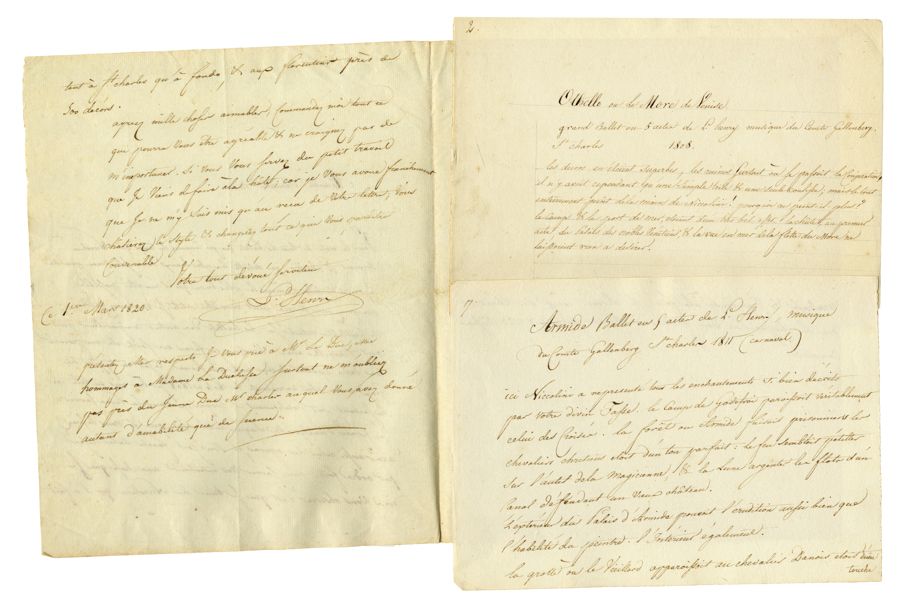 tant à St charles qu'à fondo, & aux florentins près de
300 decors.
agréez mille choses aimables, Commandez moi tout ce
qui pourra vous être agréable & ne craignez pas de
m'importuner. Si vous vous servez du petit travail
que je viens de faire à la hâte, car je vous avoue franchement
que je ne m'y suis mis qu'au reçu de votre lettre, vous
châtierez le style & changerez tout ce que vous croirez
Convenable
Votre tout dévoué serviteur
L. Henry
Ce 1er Mars 1820
presentez mes respects je vous prie à Mr Le Duc, mes
hommages à Madame La Duchesse. surtout ne m'oubliez
pas près du Jeune Duc Mr charles auquel vous avez donné
autant d'amabilité que de science.
2.
Othello ou le More de Venise
grand Ballet en 5 actes de L. henry musique du Comte Gallenberg.
St charles 1808.
les decors en étaient superbes, les ruines
il n'y avait cependant qu'une simple toile & une seule coulisse, mais le tout
entièrement peint de la main de Niccolini! pourquoi ne peint il plus?
le camp & le port de mer, étaient d'un très bel effet. la
acte du Palais des & la vue en mer de la flotte du More ne
laissoient rien a désirer.
7
Armide Ballet en 5 actes de L. Henry, musique
du Comte Gallenberg St charles 1811 (carnaval.)
ici Niccolini a représenté tous les enchantements si bien décrits
par votre divin Tasse. le Camp de godefroi paraissoit véritablement
celui des Croisés. la forêt ou Armide faisait prisonniers les
chevaliers chretiens était d'un ton parfait: le feu sembloit pétiller
sur l'autel de la magicienne, & la Lune argenter les flots d'un
Canal défendant un vieux château.
L'extérieur du Palais d'Armide prouvait l'érudition aussi bien que
l'habilité du peintre. l'Intérieur également.
la grotte où le Vieillard apparaissoit au chevalier Danois était
touche